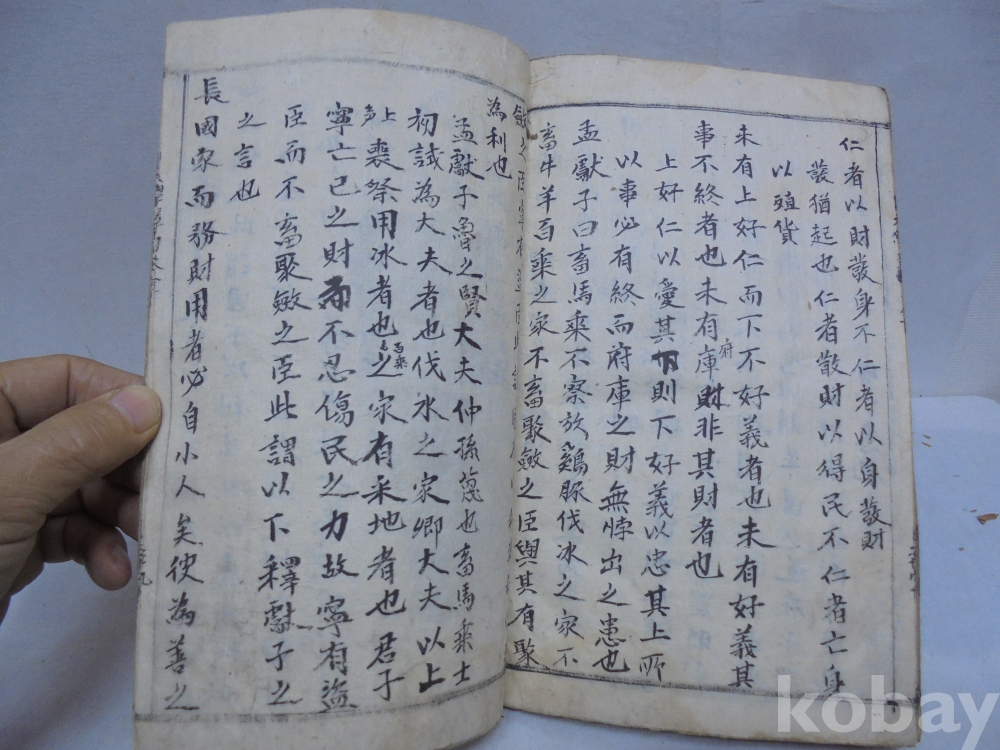 仁者以財發身不仁者以身發財
發猶起也仁者散財以得民不仁者亡身
以殖貨
未有上好仁而下不好義者也未有好義其
事不終者也未有府庫財非其財者也
上好仁以愛其下則下好義以忠其上所
以事必有終而府庫之財無悖出之患也
孟獻子曰畜馬乘不察於鷄豚伐冰之家不
畜牛羊百乘之家不畜聚斂之臣與其有聚
斂之臣寧有盜
為利也
孟獻子魯之賢大夫仲孫蔑也畜馬乘士
初試為大夫者也伐冰之家卿大夫以上
喪祭用冰者也百乘之家有采地者也君子
寧亡己之財而不忍傷民之力故寧有盜
臣而不畜聚斂之臣此謂以下釋獻子之
之言也
長國家而務財用者必自小人矣彼為善之
kobay